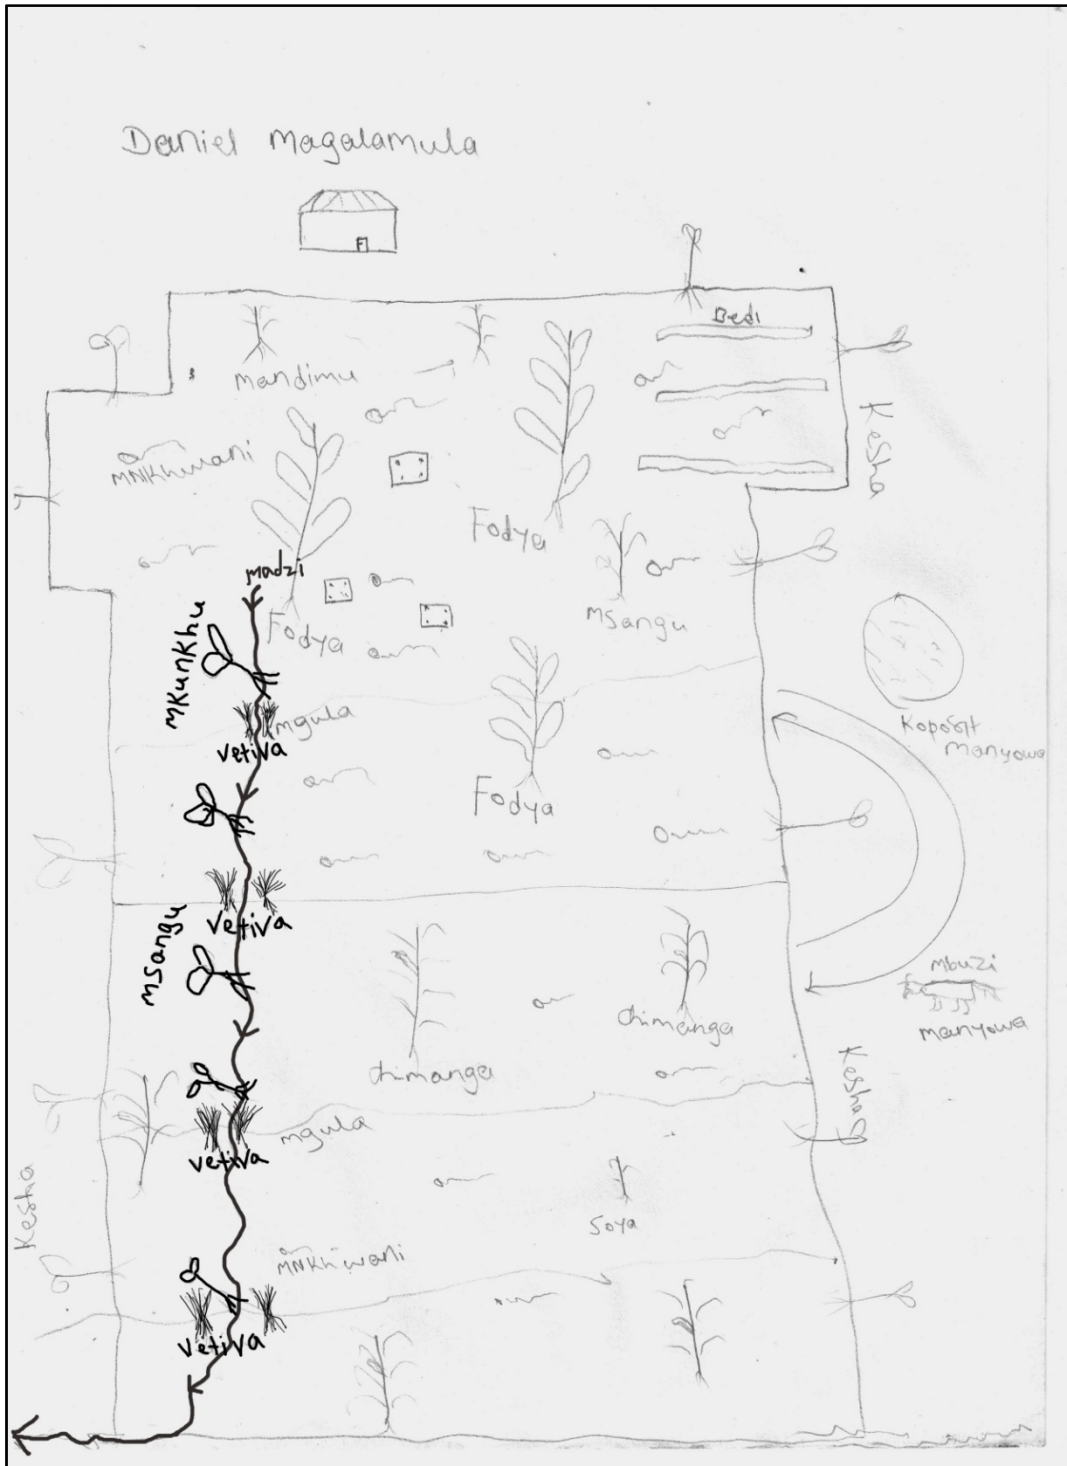 Daniel Magalamula
Bedi
mandimu
Kesha
MNKhwani
Fodya
madzi
Fodya
MSangu
MKunKhu
mgula
Vetiva
Koposit
Manyowa
Fodya
Vetiva
MSangu
Mbuzi
manyowa
chimanga
chimanga
Kesha
mgula
Vetiva
Kesha
Soya
MNKhwani
Vetiva